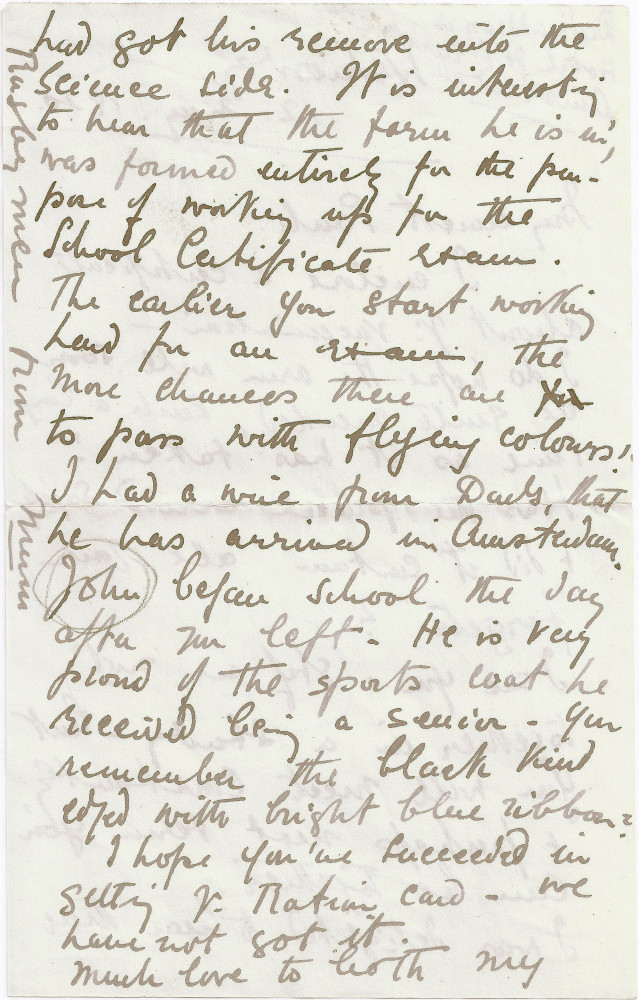 had got his remove into the
Science side. It is interesting
to hear that the form he is in,
was formed entirely for the pur-
pose of working up for the
School Certificate exam.
The earlier you start working
hard for an exam, the
more chances there are
to pass with flying colours.
I had a wire from Dads, that
he has arrived in Amsterdam.
John began school the day
after you left - He is very
proud of the sports coat he
received being a senior - You
remember the black kind
edged with bright blue ribbon?
I hope you've succeeded in
getting yr. Ration card - we
have not got it.
Much love to both my
Rugby men from Mum